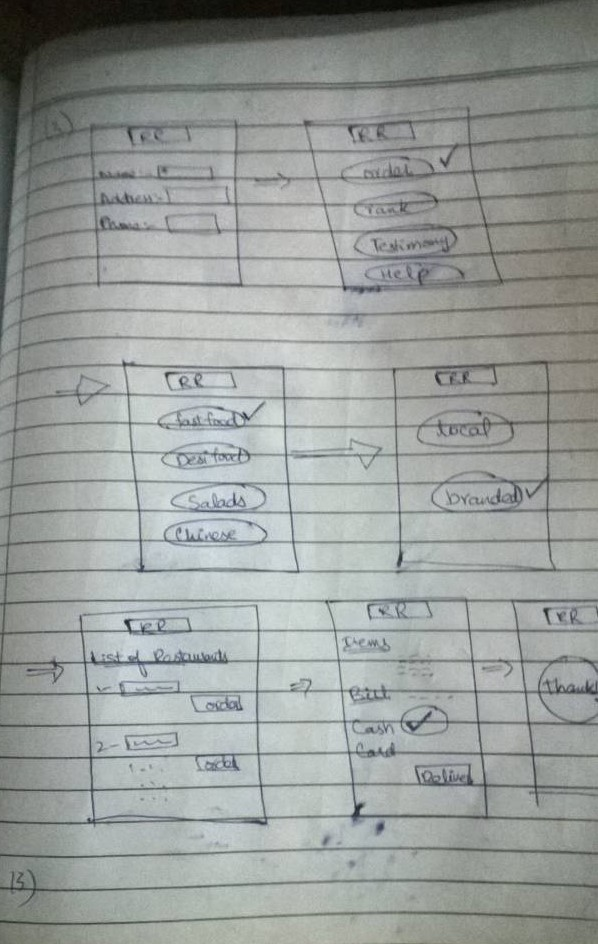 RR
Name:-
Address:-
Phone:-
RR
order ✓
rank
Testimony
Help
RR
fast food ✓
Desi food
Salads
Chinese
RR
local
branded ✓
RR
List of Restaurants
1-
order
2-
order
RR
Items
Bill
Cash ✓
Card
Deliver
RR
thanks
13)